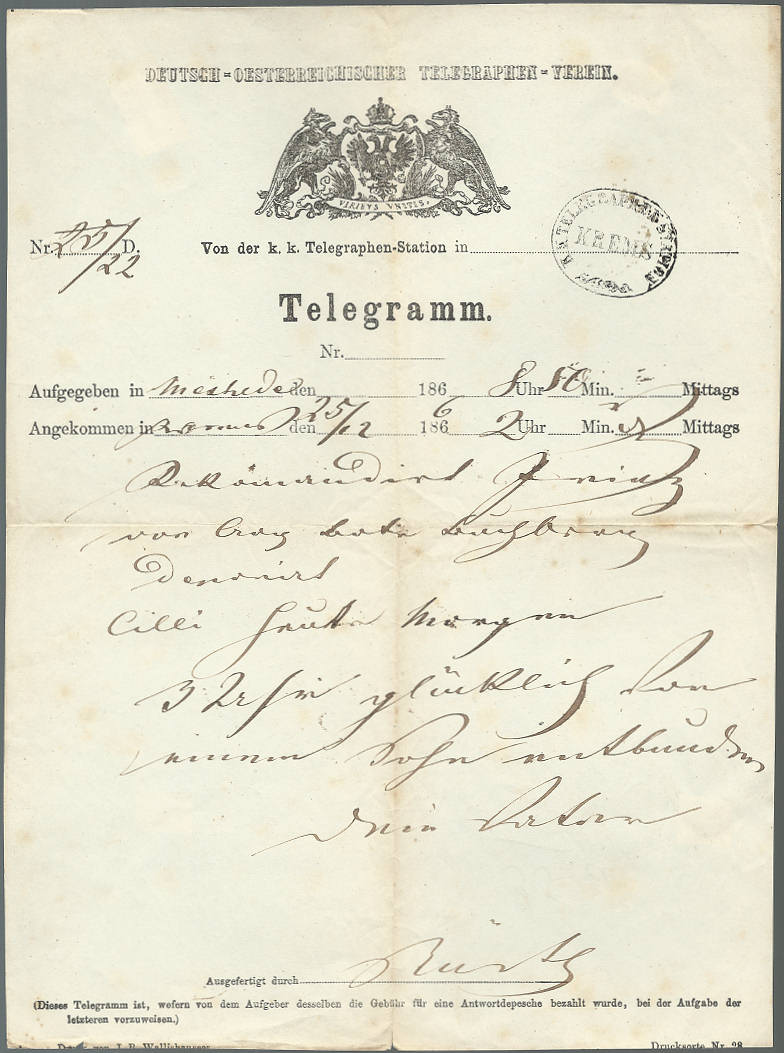 DEUTSCH=OESTERREICHISCHER TELEGRAPHEN=VEREIN.
VIRIBVS VNITIS.
Nr. 25/22 D. Von der k. k. Telegraphen-Station in
K.K. TELEGRAPHEN STATION KREMS
Telegramm.
Nr.
Aufgegeben in Meshede den 186 8 Uhr 50 Min. Mittags
Angekommen in Krems den 25/12 1866 2 Uhr Min. Mittags
Rekomandirt
von bote
Cilli heute Morgen
3 Uhr glücklich von
einem Sohn entbunden
Dein Vater
Ausgefertigt durch
(Dieses Telegramm ist, wofern von dem Aufgeber desselben die Gebühr für eine Antwortdepesche bezahlt wurde, bei der Aufgabe der
letzteren vorzuweisen.)
Druck von J. B. Wallishausser
Drucksorte Nr. 28